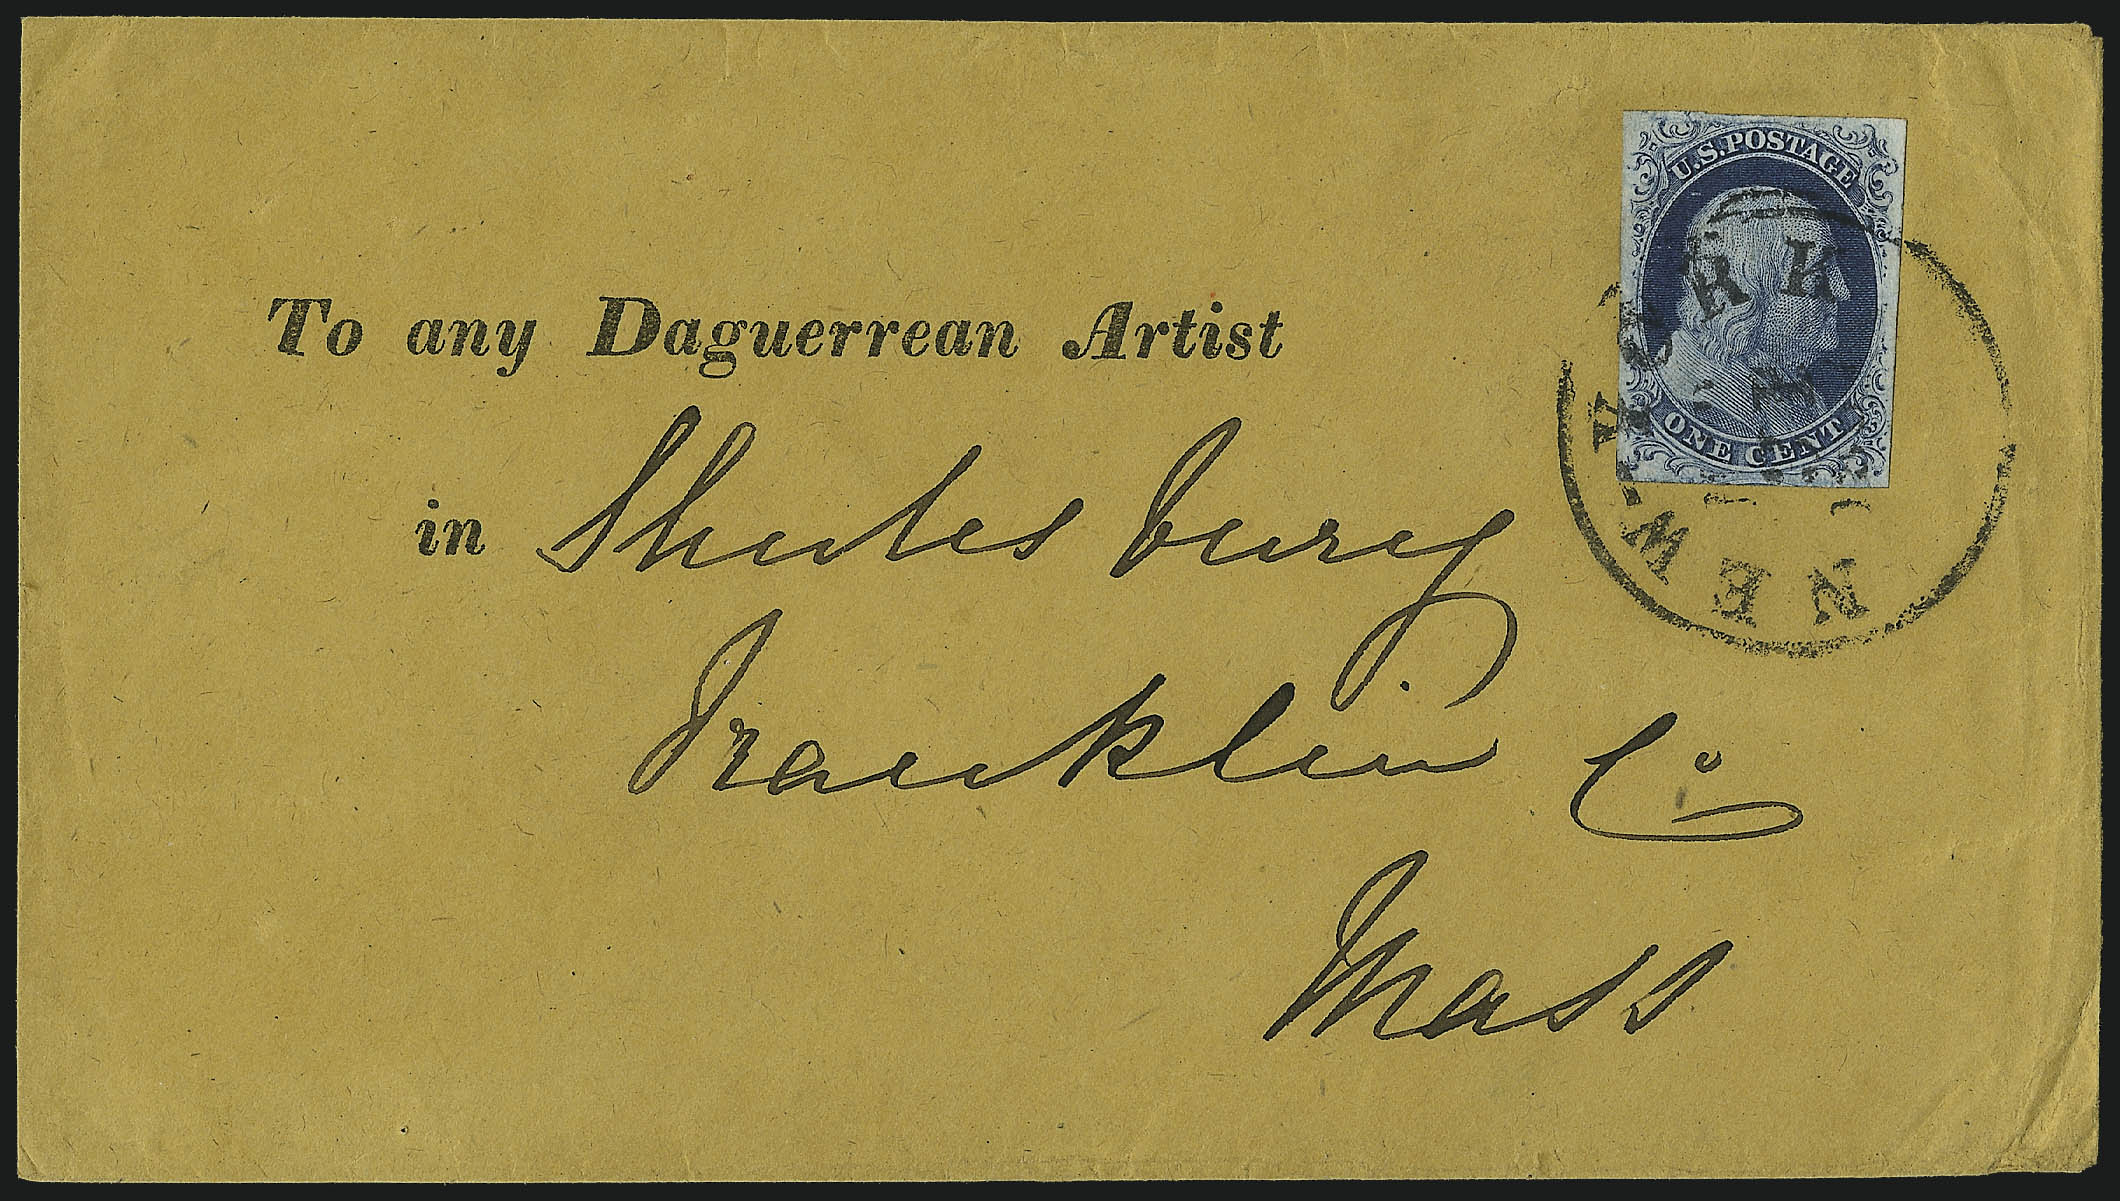 To any Daguerrean Artist
in Shutesbury
Franklin Co
Mass
U.S. POSTAGE
ONE CENT
NEW-YORK